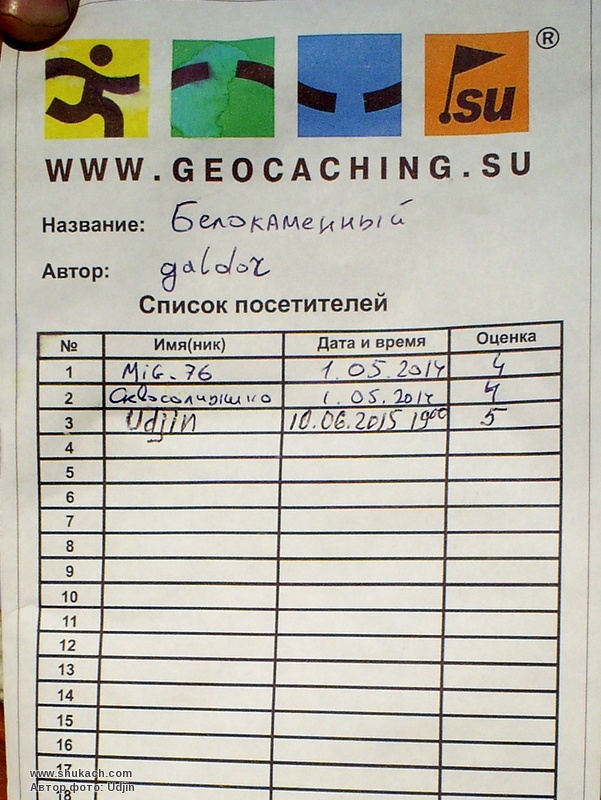 .su ®
WWW.GEOCACHING.SU
Название: Белокаменный
Автор: galdor
Список посетителей
№ Имя(ник) Дата и время Оценка
1 MiG-76 1.05.2014 4
2 1.05.2014 4
3 Udjin 10.06.2015 19⁰⁰ 5
4
5
6
7
8
9
10
11
12
13
14
15
16
17
18
www.shukach.com
Автор фото: Udjin